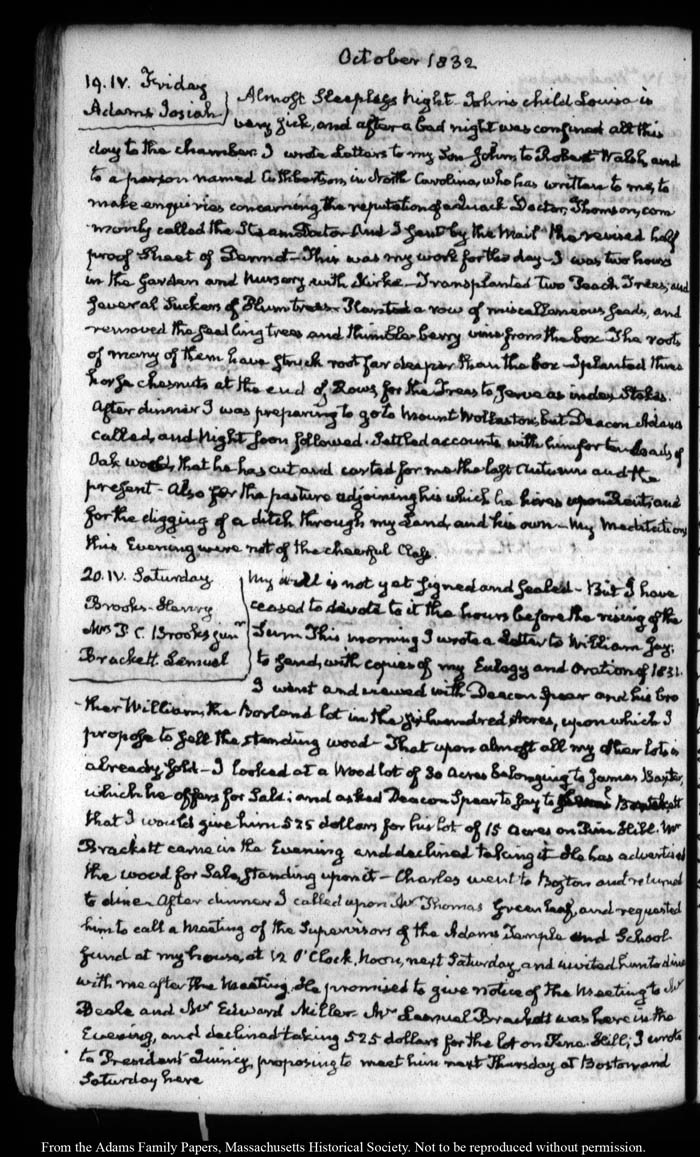 October 1832
19. IV. Friday
Adams Josiah
Almost Sleepless Night. John's child Louisa is
very sick, and after a bad night was confined all this
day to the chamber. I wrote Letters to my Son John, to Robert Walsh, and
to a person named Cuthbertson, in North Carolina, who has written to me, to
make enquiries concerning the reputation of a quack Doctor, Thomson, com
monly called the Steam Doctor. And I sent by the Mail the revised half
proof Sheet of Dermot. This was my work for the day. I was two hours
in the Garden and Nursery with Kirke. Transplanted two Peach Trees, and
several Suckers of Plumtrees. Planted a row of miscellaneous seeds, and
removed the seedling trees and thimble-berry vines from the box. The roots
of many of them have struck root far deeper than the box. I planted three
horse chesnuts at the end of Rows, for the Trees to serve as index Stakes.
After dinner I was preparing to go to Mount Wollaston, but Deacon Adams
called, and Night soon followed. Settled accounts with him for ten loads of
Oak wood, that he has cut and carted for me the last Autumn and the
present - Also for the pasture adjoining his which he hires upon Rent, and
for the digging of a ditch through my Land, and his own. My Meditations
this Evening were not of the cheerful Class.
20. IV. Saturday
Brooks. Henry
Mrs P. C. Brooks junr
Brackett Lemuel
My will is not yet signed and sealed - But I have
ceased to devote to it the hours before the rising of the
Sun. This morning I wrote a Letter to William Jay,
to send, with copies of my Eulogy and Oration of 1831.
I went and viewed with Deacon Spear and his bro
ther William, the Borland lot in the six hundred Acres, upon which I
propose to sell the standing wood - That upon almost all my other lots is
already sold - I looked at a Wood lot of 30 Acres belonging to James Baxter,
which he offers for Sale; and asked Deacon Spear to say to Brackett
that I would give him 525 dollars for his lot of 15 Acres on Pine Hill. Mr
Brackett came in the Evening and declined taking it. He has advertised
the wood for Sale, standing upon it - Charles went to Boston and returned
to dine. After dinner I called upon Mr Thomas Greenleaf, and requested
him to call a Meeting of the Supervisors of the Adams Temple and School
fund at my house, at 12 O'Clock, Noon, next Saturday, and invited him to dine
with me after the Meeting. He promised to give notice of the Meeting to Mr
Beale and Mr Edward Miller. Mr Lemuel Brackett was here in the
Evening, and declined taking 525 dollars for the lot on Pine Hill; I wrote
to President Quincy, proposing to meet him next Thursday at Boston and
Saturday here
From the Adams Family Papers, Massachusetts Historical Society. Not to be reproduced without permission.